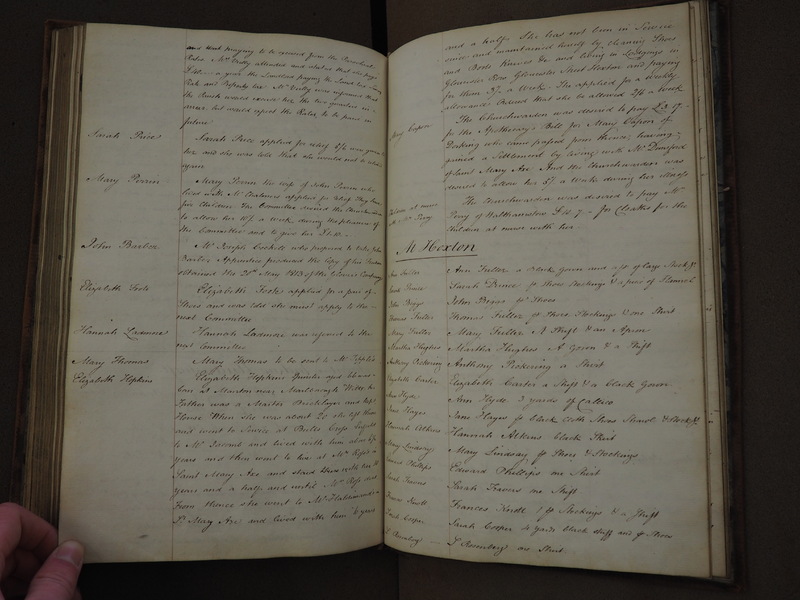 and went praying to be excused from the Parochial
Rates Mr Vully attended and stated that she pays
a year the Landlord paying the Land tax Sewer
Rate and Property tax Mr Vully was informed that
the Parish would excuse her the two quarters in
arrear but would expect the Rates to be paid in
future
Sarah Price
Sarah Price applied for relief
her and she was told that she would not be
again
Mary Perrin
Mary Perrin the wife of John Perrin who
lives with Mr Chalmers applied for relief They have
five Children The Committee desired the Churchwarden
to allow her 10/ a week during the pleasure of
the Committee and to give her
John Barber
Mr Joseph who proposed to take John
Barber Apprentice produced the Copy of his freedom
obtained the 20th May 1813 of the Glovers Company
Elizabeth Foote
Elizabeth Foote applied for a pair of
Shoes and was told she must apply to the
next Committee
Hannah Lardmore
Hannah Lardmore was referred to the
next Committee
Mary Thomas
Mary Thomas to be sent to Mr Tipple's
Elizabeth Hopkins
Elizabeth Hopkins
born at Manton near Marlborough Wilts her
Father was a Master Bricklayer and kept
House When she was about 20 she left them
and went to Service at
to Mr and lived with him about
years and then went to live at Mr Ross's
Saint Mary Axe and staid there with him
years and a half and until Mr Ross died
From thence she went to Mr
St Mary Axe and lived with him 6 years
and a half. She has not been in Service
since and maintained herself by cleaning Shoes
and Boots Knives &c and living in Lodgings in
Gloucester Row Gloucester Street Hoxton and paying
for them 3/. a Week. She applied for a Weekly
allowance Ordered that she be allowed 2/6 a Week
Mary Capon
The Churchwarden was desired to pay £2. 17.
for the Apothecary's Bill for Mary Capon of
Dorking who came passed from thence, having
gained a Settlement by living with Mr
of Saint Mary Axe And the Churchwarden was
desired to allow her 5/. a Week during her illness
Children at nurse
Mr Perry
The Churchwarden was desired to pay Mr
Perry of Walthamstow £14. 7 - for Cloaths for the
Children at nurse with her
At Hoxton
Ann Fuller
Ann Fuller a black Gown and a pr of large Stockgs
Sarah Prince
Sarah Prince pr shoes Stockings & a piece of Flannel
John Briggs
John Briggs pr Shoes
Thomas Fuller
Thomas Fuller pr Shoes, Stockings & one Shirt
Mary Fuller
Mary Fuller, A Shift & an Apron
Martha Hughes
Martha Hughes A Gown & a Shift
Anthony Pickering
Anthony Pickering a Shirt
Elizabeth Carter
Elizabeth Carter a Shift & a black Gown
Ann Hyde
Ann Hyde 3 yards of Calico
Jane Hayes
Jane Hayes pr black cloth Shoes Shawl & Stockgs
Hannah Atkens
Hannah Atkens black Skirt
Mary Lindsay
Mary Lindsay pr Shoes & Stockings
Edward Phillips
Edward Phillips one Shirt
Sarah Travers
Sarah Travers one Shift
Frances Knott
Frances Knott 1 pr Stockings & a Shift
Sarah Cooper
Sarah Cooper 4 yards black Stuff and pr Shoes
S Rosenberg
S Rosenberg one Shirt